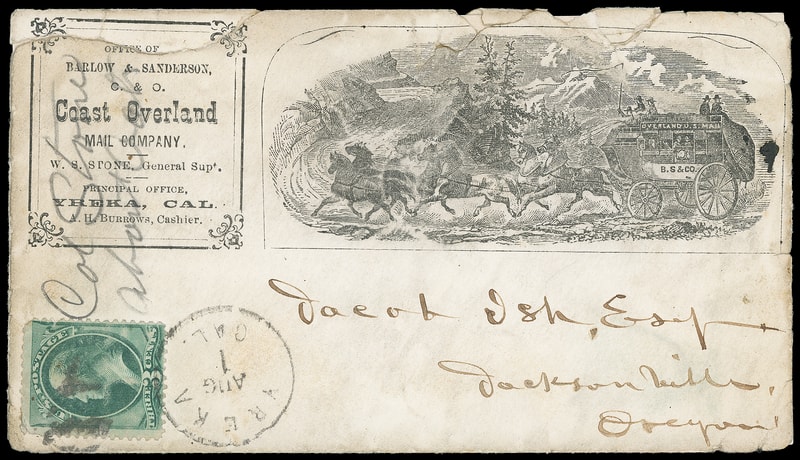 OFFICE OF
BARLOW & SANDERSON,
C. & O.
Coast Overland
MAIL COMPANY,
W. S. STONE, General Supt.
PRINCIPAL OFFICE,
YREKA, CAL.
A. H. BURROWS, Cashier.
Col Stone
above
OVERLAND U.S. MAIL
B. S & CO.
Jacob Ish, Esq.
Jacksonville,
Oregon
U.S. POSTAGE
THREE CENTS
YREKA
AUG
1
CAL.